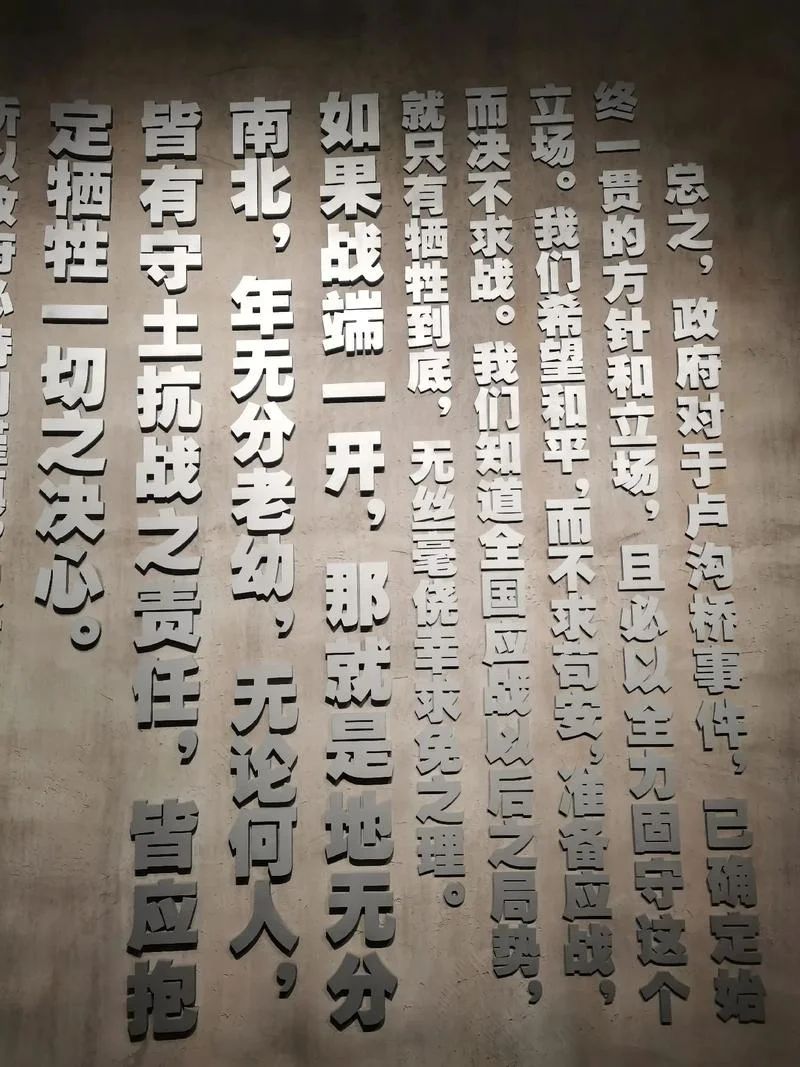 总之，政府对于卢沟桥事件，已确定始
终一贯的方针和立场，且必以全力固守这个
立场。我们希望和平，而不求苟安，准备应战，
而决不求战。我们知道全国应战以后之局势，
就只有牺牲到底，无丝毫侥幸求免之理。
如果战端一开，那就是地无分
南北，年无分老幼，无论何人，
皆有守土抗战之责任，皆应抱
定牺牲一切之决心。
所以政府必特别谨慎，